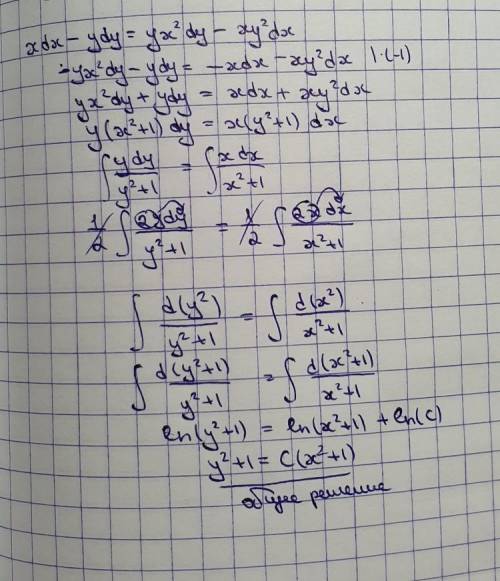 xdx - ydy = yx²dy - xy²dx
-yx²dy - ydy = -xdx - xy²dx |·(-1)
yx²dy + ydy = xdx + xy²dx
y(x²+1)dy = x(y²+1)dx
∫ ydy/y²+1 = ∫ xdx/x²+1
1/2 ∫ 2ydy/y²+1 = 1/2 ∫ 2xdx/x²+1
∫ d(y²)/y²+1 = ∫ d(x²)/x²+1
∫ d(y²+1)/y²+1 = ∫ d(x²+1)/x²+1
ln(y²+1) = ln(x²+1) + ln(C)
y²+1 = C(x²+1)
общее решение